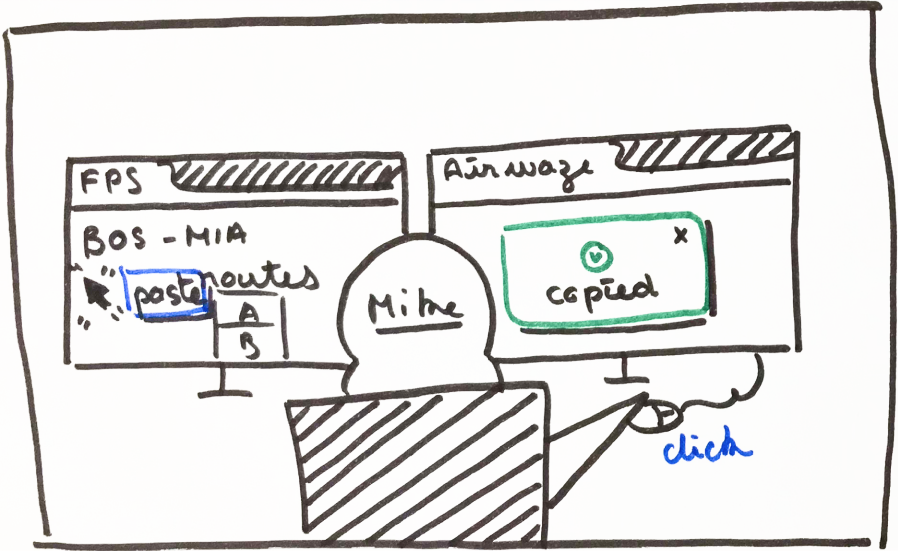 FPS
BOS - MIA
paste routes
A
B
Mike
Airwaze
x
copied
click